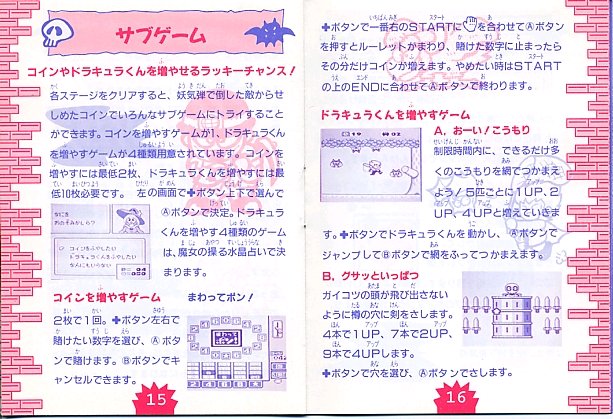 サブゲーム
コインやドラキュラくんを増やせるラッキーチャンス！
各ステージをクリアすると、妖気弾で倒した敵からせ
しめたコインでいろんなサブゲームにトライすること
ができます。コインを増やすゲームが1、ドラキュラくん
を増やすゲームが4種類用意されています。コインを
増やすには最低2枚、ドラキュラくんを増やすには最
低10枚必要です。 左の画面で✚ボタン上下で選んで
Ⓐボタンで決定。ドラキュラ
くんを増やす4種類のゲーム
は、魔女の操る水晶占いで決
まります。
なにを
おのぞみかしら？
コインをふやしたい
ドラキュラくんをふやしたい
なんにもいらない
コインを増やすゲーム まわってポン！
2枚で1回。✚ボタン左右で
賭けたい数字を選び、Ⓐボタ
ンで賭けます。Ⓑボタンでキ
ャンセルできます。
15
✚ボタンで一番右のSTARTに を合わせてⒶボタン
を押すとルーレットがまわり、賭けた数字に止まったら
その分だけコインが増えます。やめたい時はSTART
の上のENDに合わせてⒶボタンで終わります。
ドラキュラくんを増やすゲーム
A、おーい！こうもり
制限時間内に、できるだけ多
くのこうもりを網でつかまえ
よう！5匹ごとに1UP、2
UP、4UPと増えていきま
す。✚ボタンでドラキュラを動かし、Ⓐボタンで
ジャンプしてⒷボタンで網をふってつかまえます。
B、グサッといっぱつ
ガイコツの頭が飛び出さない
ように樽の穴に剣をさします。
4本で1UP、7本で2UP、
9本で4UPします。
✚ボタンで穴を選び、Ⓐボタンでさします。
16